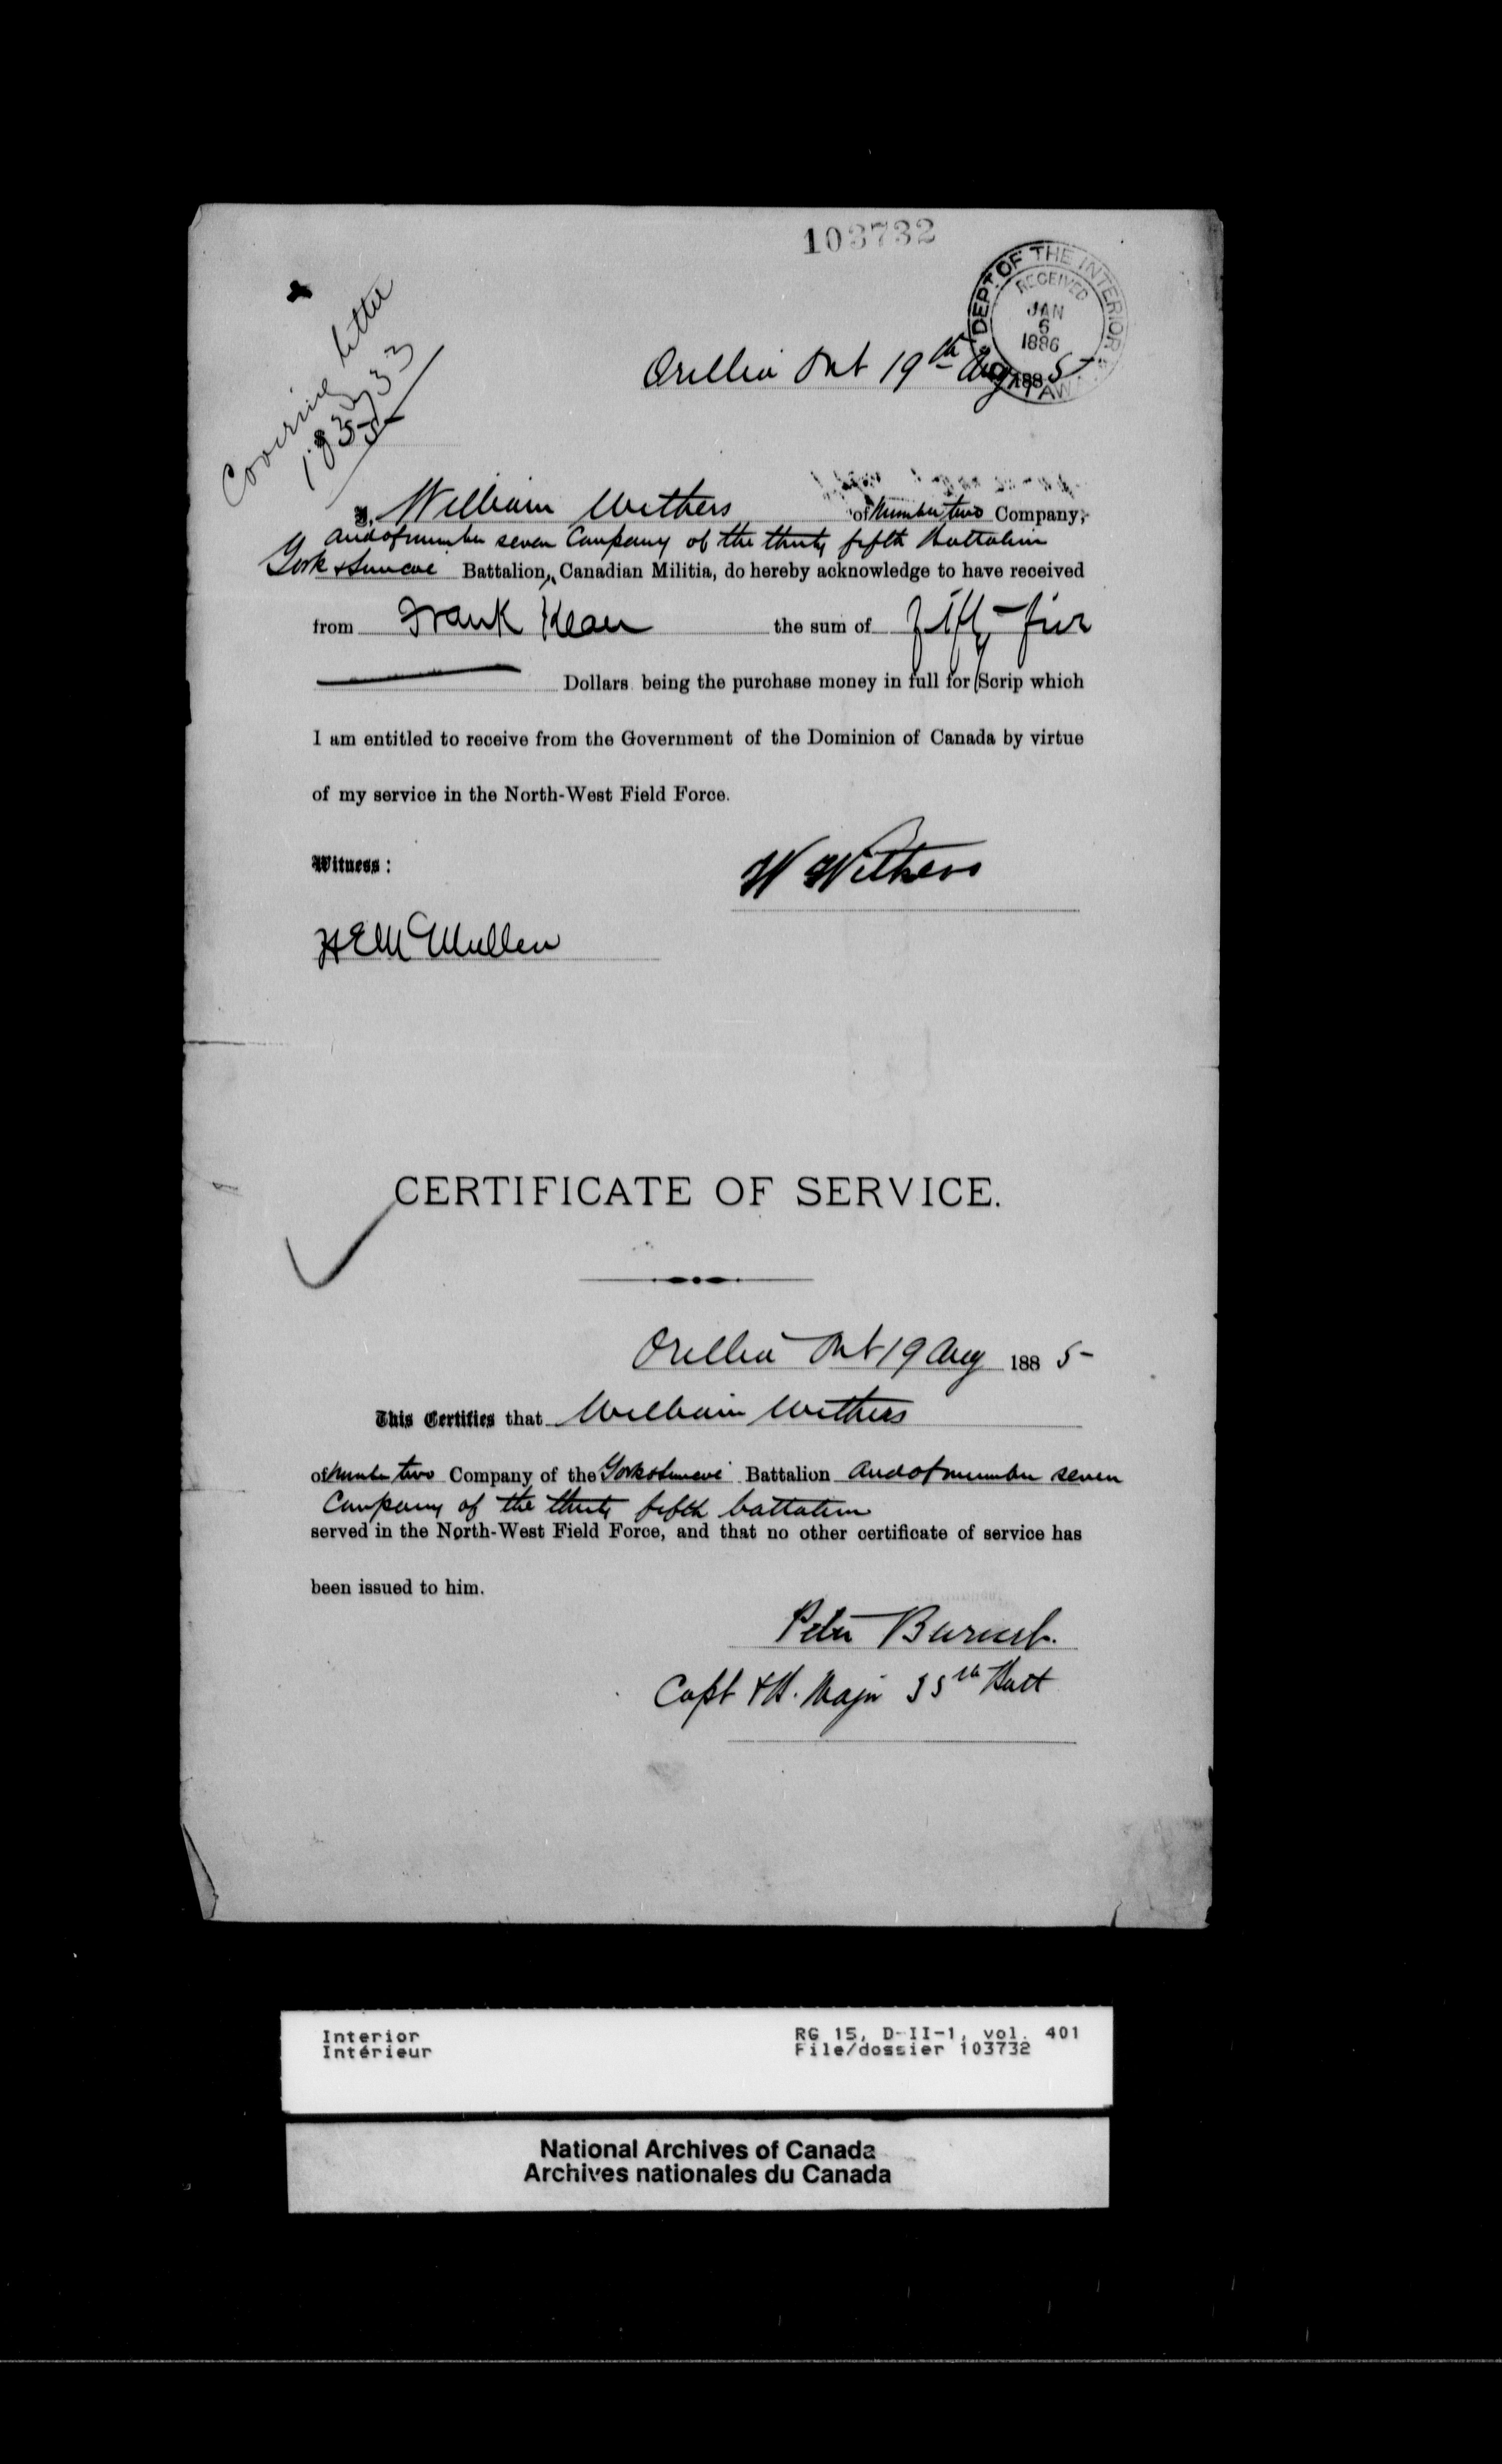 103732
DEPT OF THE INTERIOR
RECEIVED
JAN
6
1886
Covering letter
Orillia Ont 19th Aug 1885
I, William Withers of Number two Company,
and of number seven Company of the thirty fifth Battalion
York & Simcoe Battalion, Canadian Militia, do hereby acknowledge to have received
from Frank Kean the sum of fifty-five
Dollars being the purchase money in full for Scrip which
I am entitled to receive from the Government of the Dominion of Canada by virtue
of my service in the North-West Field Force.
Witness:
W Withers
McMullen
CERTIFICATE OF SERVICE.
Orillia Ont 19 Aug 1885
This Certifies that William Withers
of Number two Company of the York & Simcoe Battalion and of number seven
Company of the thirty fifth battalion
served in the North-West Field Force, and that no other certificate of service has
been issued to him.
Peter Burnet.
Capt & B. Major 35th Batt
Interior
Intérieur
RG 15, D-II-1, vol. 401
File/dossier 103732
National Archives of Canada
Archives nationales du Canada